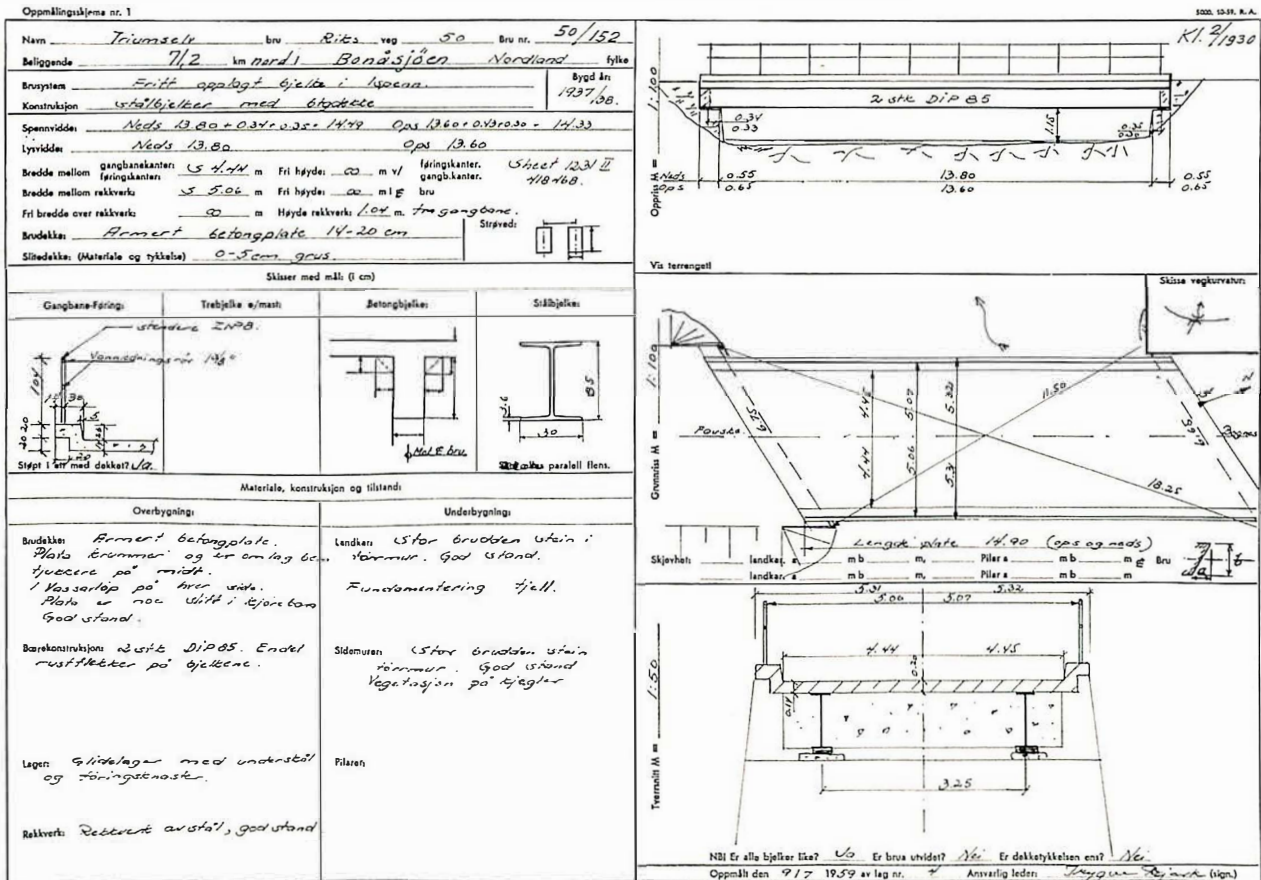 Oppmålingsskjema nr. 1
5000. 10-59. R. A.
Navn bru Riks veg 50 Bru nr. 50/152
Beliggende 7,2 km nord i Bonåsjöen Nordland fylke
Brusystem Fritt opplagt bjelke i 1 spenn.
Bygd år: 1937/38.
Konstruksjon stålbjelker med
Spennvidde: Neds 13.80 + 0.34 + 0.35 = 14.49 Ops 13.60 + 0.43 + 0.30 = 14.33
Lysvidde: Neds 13.80 Ops 13.60
Bredde mellom gangbanekanter: føringskanter: S 4.44 m Fri høyde: ∞ m v/ føringskanter. gangb.kanter.
Sheet 1231 II
418468.
Bredde mellom rekkverk: S 5.06 m Fri høyde: ∞ m i bru
Fri bredde over rekkverk: ∞ m Høyde rekkverk: 1.04 m. fra gangbane.
Brudekke: Armert betongplate 14-20 cm
Strøved:
Slitedekke: (Materiale og tykkelse) 0-5 cm grus.
Skisser med mål: (i cm)
Gangbane-Føring: Trebjelke e/mast: Betongbjelke: Stålbjelke:
stendere INP8.
104
30
5
85
3.6
30
Mål bru
Støpt i ett med dekket? Ja.
paralell flens.
Materiale, konstruksjon og tilstand:
Overbygning: Underbygning:
Brudekke: Armert betongplate.
Plata krummer og er omlag
tjukkere på midt.
1 Vassarløp på hver side.
Plata er noe slitt i
God stand.
Bærekonstruksjon: 2 stk DIP 85. Endel
rustflekker på bjelkene.
Lager: Glidelager med underskål
og föringsknaster.
Rekkverk: Rekkverk av stål, god stand
Landkar: Stor brudden stein i
törrmur. God stand.
Fundamentering fjell.
Sidemurer: Stor brudden stein
törrmur. God stand
Vegetasjon på kjegler
Pilarer:
Kl. 2/1930
Oppriss M = 1:100
2 stk DIP 85
0.34
0.33
1.15
0.35
0.30
Neds 0.55 13.80 0.55
Ops 0.65 13.60 0.65
Vis terrenget!
Skisse vegkurvatur:
Grunnriss M = 1:100
6.75
4.45
5.07
5.32
11.50
N
4.44
5.06
5.31
18.25
Lengde plate 14.90 (ops og neds)
Skjevhet: landkar. a m b m. Pilar a m b m Bru
landkar. a m b m. Pilar a m b m
5.31 5.32
5.06 5.07
4.44 4.45
0.20
0.14
Tverrsnitt M = 1:50
3.25
NB! Er alle bjelker like? Ja Er brua utvidet? Nei Er dekketykkelsen ens? Nei
Oppmålt den 9/7 1959 av lag nr. 4 Ansvarlig leder: (sign.)